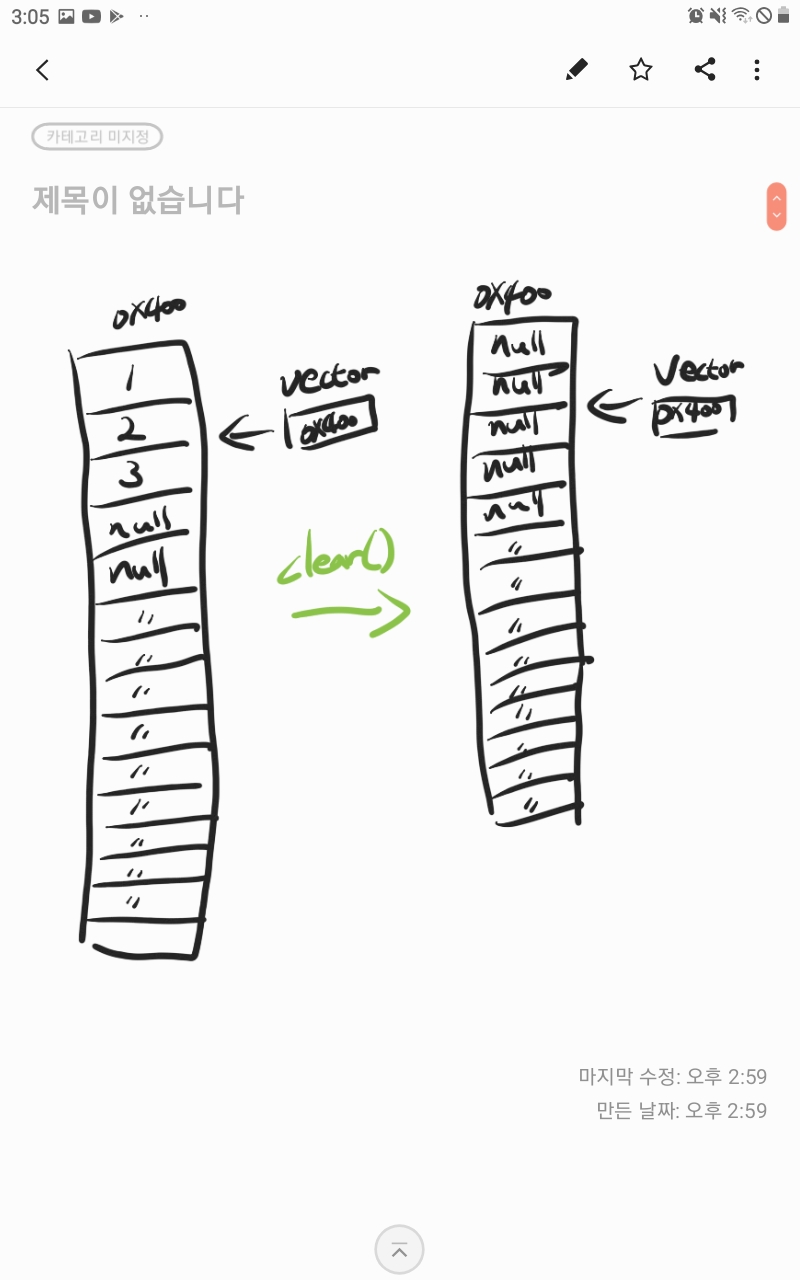 3:05
카테고리 미지정
제목이 없습니다
0x400
1
2
3
null
null
"
"
"
"
"
"
"
"
"
vector
0x400
clear()
0x400
null
null
null
null
null
"
"
"
"
"
"
"
"
"
Vector
0x400
마지막 수정: 오후 2:59
만든 날짜: 오후 2:59